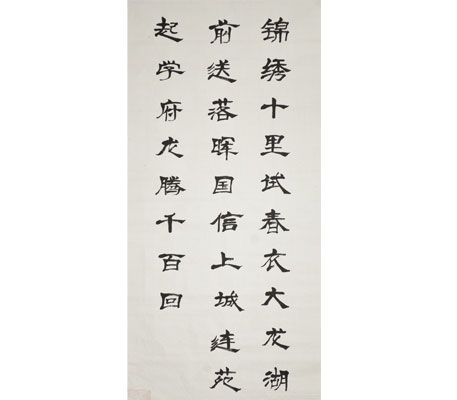 锦绣十里试春衣大龙湖
前送落晖国信上城连苑
起学府龙腾千百回